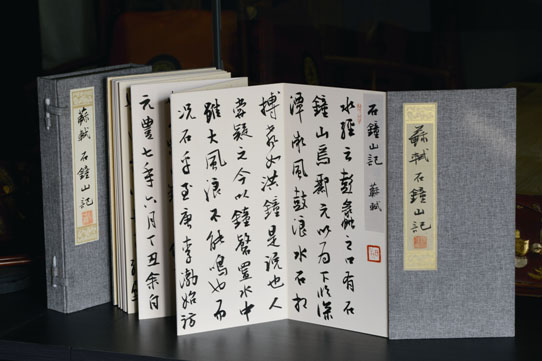 蘇軾石鐘山記
石鐘山記 蘇軾
水經云彭蠡之口有石
鐘山焉酈元以為下臨深
潭微風鼓浪水石相
搏聲如洪鐘是說也人
常疑之今以鐘磬置水中
雖大風浪不能鳴也而
況石乎至唐李渤始訪
元豐七年六月丁丑余自
蘇軾石鐘山記